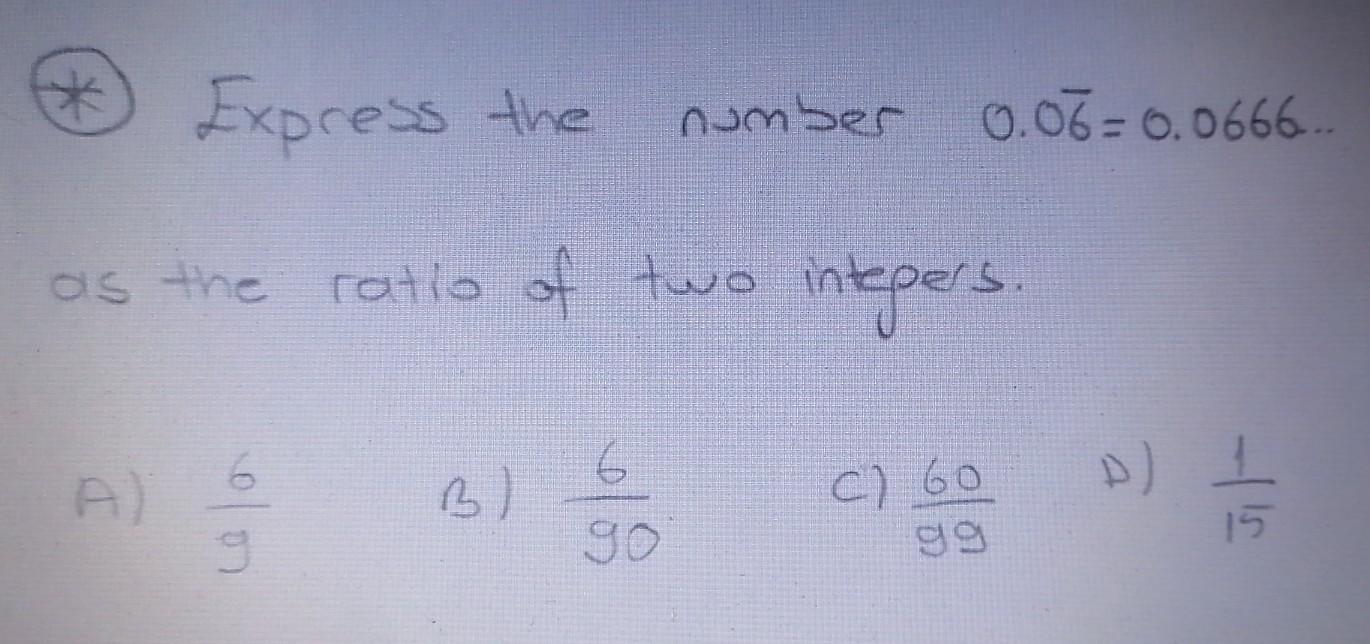 * Express the number 0.06̅ = 0.0666..
as the ratio of two intepers.
A) 6/9 B) 6/90 C) 60/99 D) 1/15